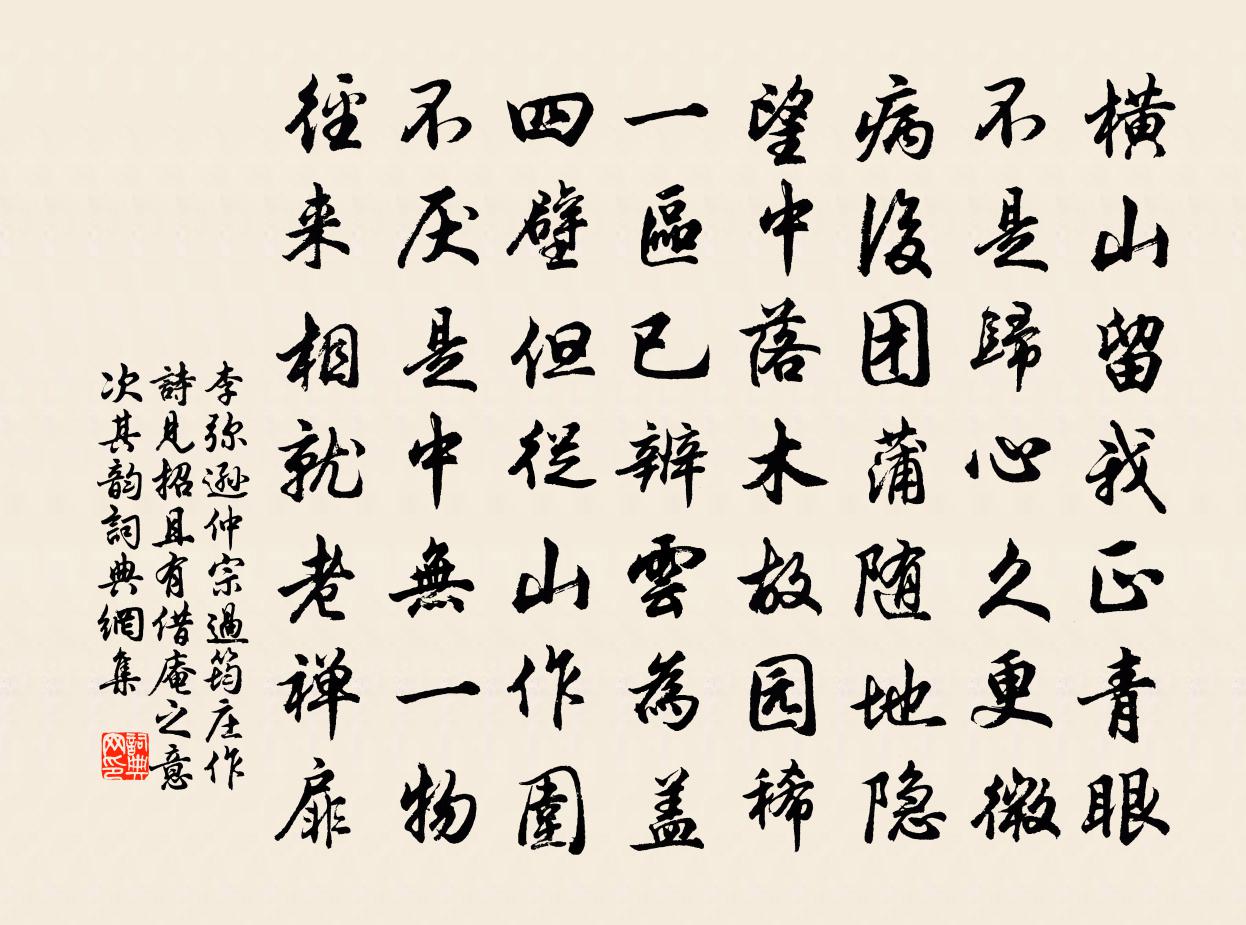 橫山留我正青眼
不是歸心久更微
病後团蒲随地隐
望中落木故园稀
一區已辦雲為盖
四壁但從山作圍
不厌是中無一物
徑来相就老禅扉
李弥遜仲宗過筠庄作
詩見招且有借庵之意
次其韵詞典網集
詞典网印